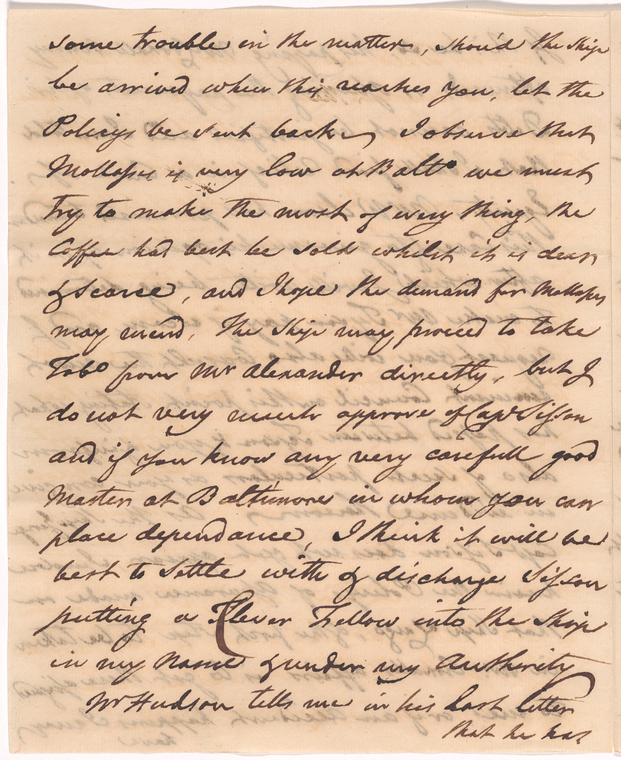 some trouble in the matter, shou'd the Ship
be arrived when this reaches you, let the
Policys be sent back, I observe that
Mollasses is very low at Balto we must
try to make the most of every thing, the
Coffee had best be sold whilst it is dear
& scarce, and I hope the demand for Mollasses
may mend, The Ship may proceed to take
Tobo from Mr Alexander directly, but I
do not very much approve of Capt Sisson
and if you know any very carefull good
Master at Baltimore in whom you can
place dependance, I think it will be
best to settle with & discharge Sisson
putting a Clever Fellow into the Ship
in my Name & under my Authority
Mr Hudson tells me in his last letter
that he has